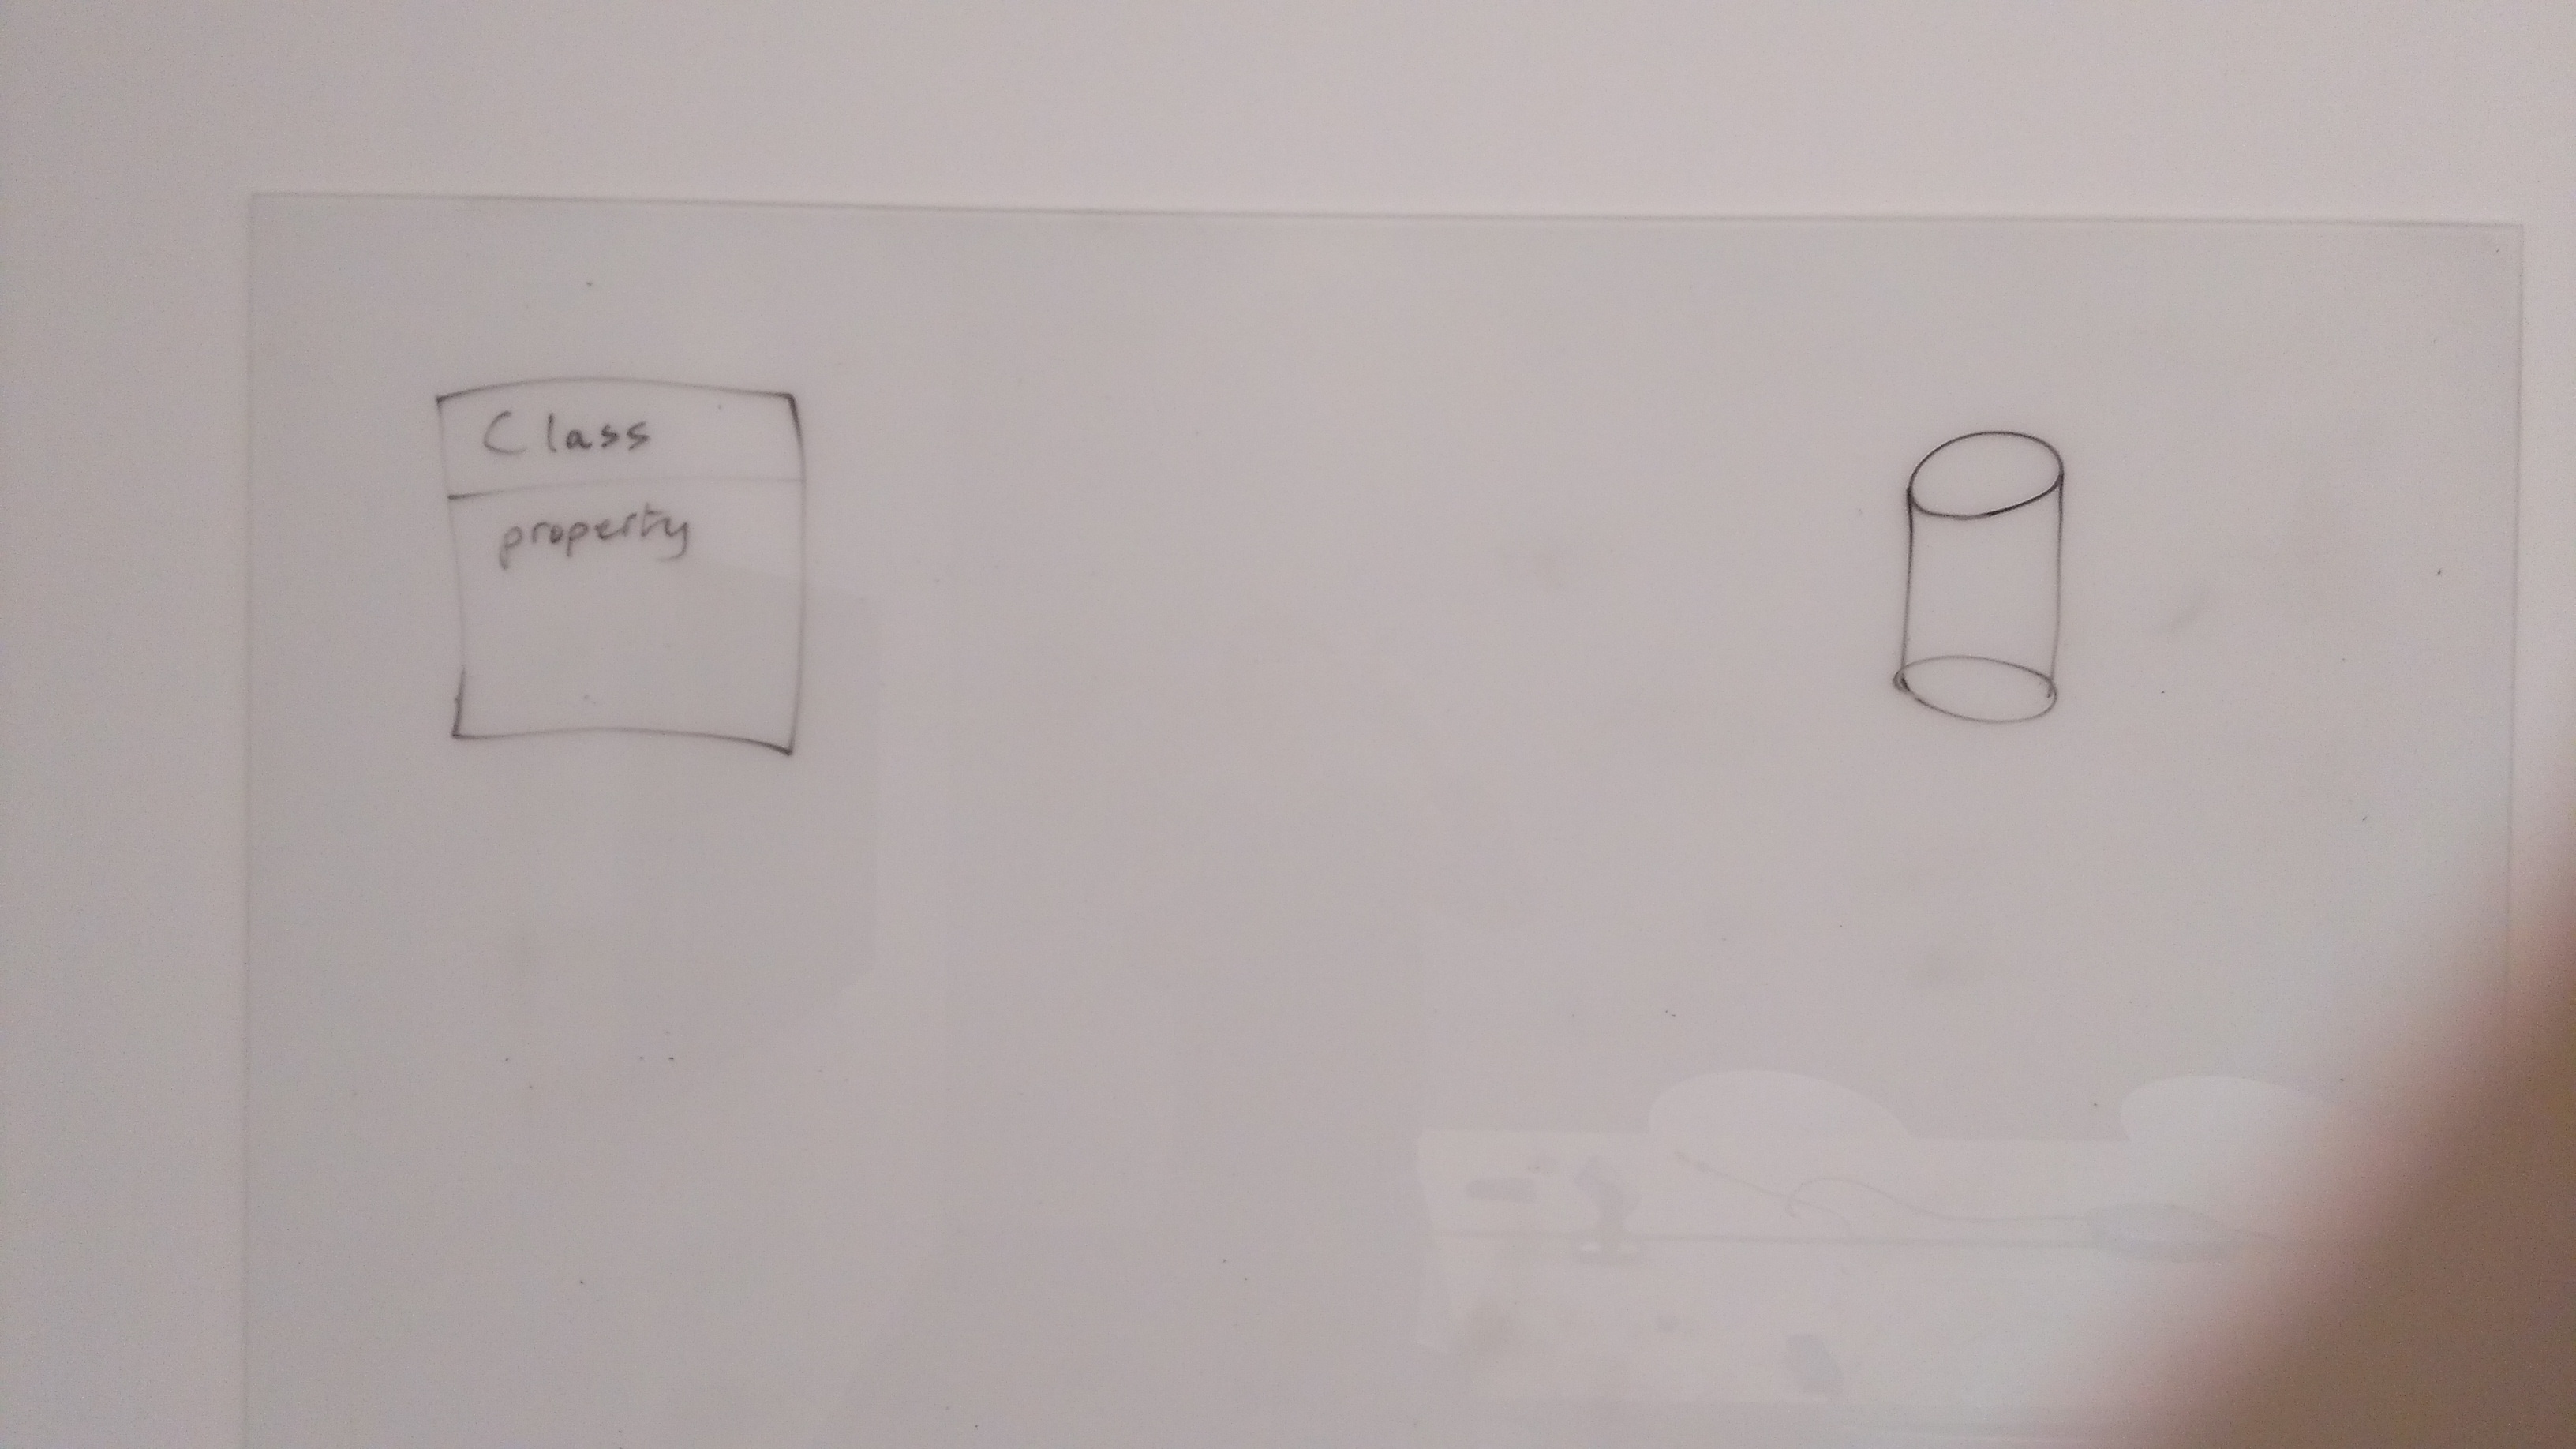 Class
property